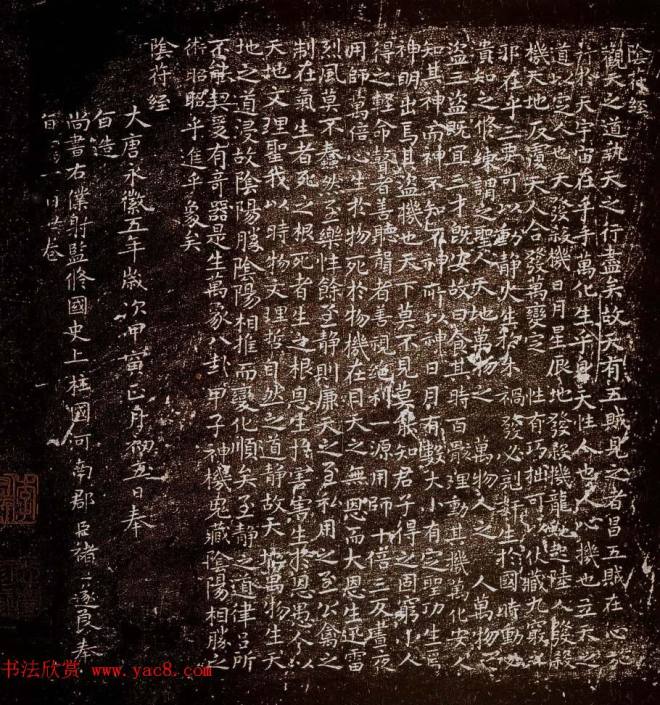 陰符經
觀天之道執天之行盡矣故天有五賊見之者昌五賊在心施
行於天宇宙在乎手萬化生乎身天性人也人心機也立天之
道以定人也天發殺機日月星辰地發殺機龍蛇起陸人發殺
機天地反覆天人合發萬變定 性有巧拙可以伏藏九竅
邪在乎三要可以動靜火生於木禍發必剋奸生於國時動
知之修練謂之聖人天地萬物之 萬物人之 人萬物之
盜三盜既宜三才既安故曰食其時百骸理動其機萬化安人
知其神而神不知不神所以神日月有數大小有定聖功生焉
神明出焉其盜機也天下莫不見莫能知君子得之固窮小人
得之輕命瞽者善聽聾者善視絕利一源用師十倍三反晝夜
用師萬倍心生於物死於物機在目天之無恩而大恩生迅雷
烈風莫不蠢然至樂性餘至靜則廉天之至私用之至公禽之
制在氣生者死之根死者生之根恩生於害害生於恩愚人以
天地文理聖我以時物文理哲自然之道靜故天地萬物生天
地之道浸故陰陽勝陰陽相推而變化順矣至靜之道律呂所
不能契爰有奇器是生萬象八卦甲子神機鬼藏陰陽相勝之
術昭昭乎進乎象矣
陰符經
大唐永徽五年歲次甲寅正月初五日奉
旨造
尚書右僕射監修國史上柱國河南郡臣褚遂良奉
旨 卷
书法欣赏 www.yac8.com